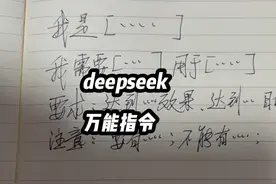 我是[····]
我需要[····] 用于[····]
deepseek
万能指令
要求：达到···效果，达到···
注意：要有···；不能有···；